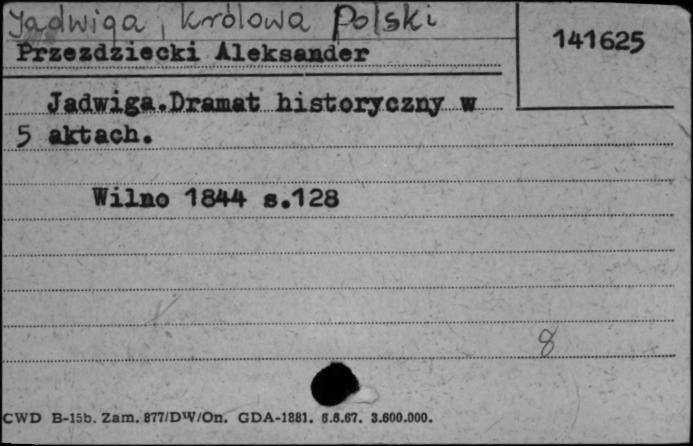 Jadwiga, królowa Polski
141625
Przezdziecki Aleksander
Jadwiga.Dramat historyczny w
5 aktach.
Wilno 1844 s.128
8
CWD B-15b. Zam. 877/DW/On. GDA-1881. 6.6.67. 3.600.000.